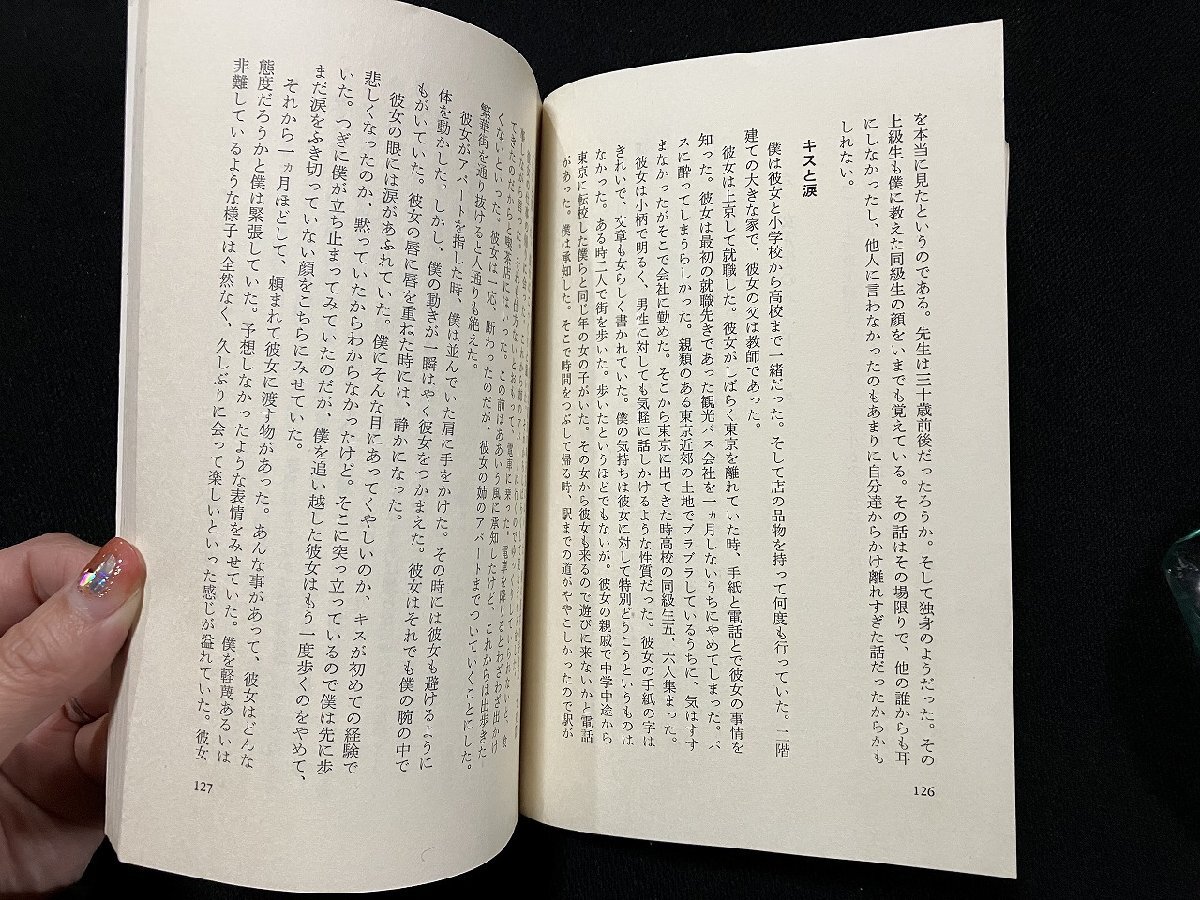 を本当に見たというのである。先生は三十歳前後だったろうか。そして独身のようだった。その
上級生も僕に教えた同級生の顔をいまでも覚えている。その話はその場限りで、他の誰からも耳
にしなかったし、他人に言わなかったのもあまりに自分達からかけ離れすぎた話だったからかも
しれない。
キスと涙
僕は彼女と小学校から高校まで一緒だった。そして店の品物を持って何度も行っていた。二階
建ての大きな家で、彼女の父は教師であった。
彼女は上京して就職した。彼女がしばらく東京を離れていた時、手紙と電話とで彼女の事情を
知った。彼女は最初の就職先きであった観光バス会社を一ヵ月しないうちにやめてしまった。バ
スに酔ってしまうらしかった。親類のある東京近郊の土地でブラブラしているうちに、気はすす
まなかったがそこで会社に勤めた。そこから東京に出てきた時高校の同級生五、六人集まった。
彼女は小柄で明るく、男生に対しても気軽に話しかけるような性質だった。彼女の手紙の字は
きれいで、文章も女らしく書かれていた。僕の気持ちは彼女に対して特別どうこうというものは
なかった。ある時二人で街を歩いた。歩いたというほどでもないが。彼女の親戚で中学中途から
東京に転校した僕らと同じ年の女の子がいた。その女から彼女も来るので遊びに来ないかと電話
があった。僕は承知した。そこで時間をつぶして帰る時、駅までの道がややこしかったので駅が
126
てきたのだからと喫茶店にはいった。この前はああいう風に承知したけど、これからは出歩きた
くないといった。彼女は一応、断わったのだが、彼女の姉のアパートまでついていくことにした。
繁華街を通り抜けると人通りも絶えた。
彼女がアパートを指した時、僕は並んでいた肩に手をかけた。その時には彼女も避けるように
体を動かした、しかし、僕の動きが一瞬はやく彼女をつかまえた。彼女はそれでも僕の腕の中で
もがいていた。彼女の唇に唇を重ねた時には、静かになった。
彼女の眼には涙があふれていた。僕にそんな目にあってくやしいのか、キスが初めての経験で
悲しくなったのか、黙っていたからわからなかったけど。そこに突っ立っているので僕は先に歩
いた。つぎに僕が立ち止まってみていたのだが、僕を追い越した彼女はもう一度歩くのをやめて、
まだ涙をふき切っていない顔をこちらにみせていた。
それから一ヵ月ほどして、頼まれて彼女に渡す物があった。あんな事があって、彼女はどんな
態度だろうかと僕は緊張していた。予想しなかったような表情をみせていた。僕を軽蔑あるいは
非難しているような様子は全然なく、久しぶりに会って楽しいといった感じが溢れていた。彼女
127